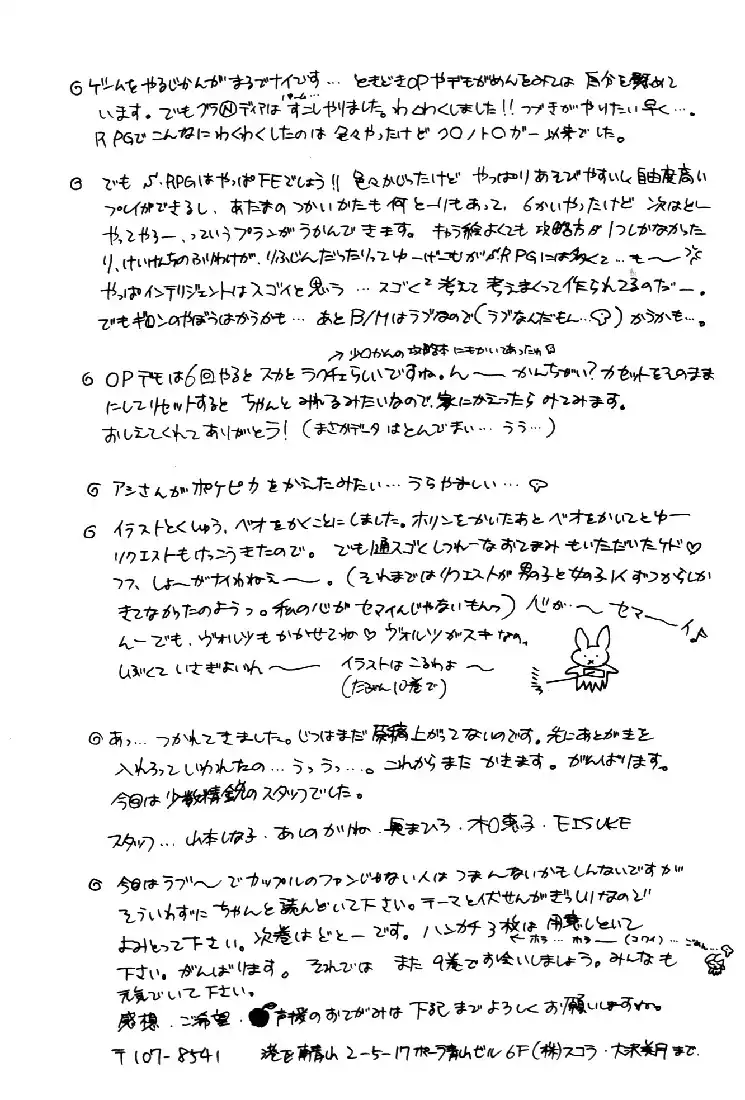 ◎ ゲームをやるじかんがまるでナイです… ときどきOPやデモがめんをみては 自分を慰めて
います。でもグラⓃディアは すこしやりました。わくわくしました!! つづきがやりたい早く…。
RPGでこんなにわくわくしたのは 色々やったけど クロノトロガー以来でした。
◎ でも S・RPGはやっぱFEでしょう!! 色々かじったけど やっぱりあそびやすいし 自由度高い
プレイができるし、あたまのつかいかたも何とーりもあって、6かいやったけど 次はどー
やってやろー、っていうプランがうかんできます。キャラ絵よくても 攻略方が1つしかなかった
り、けいけんちのふりわけが、りふじんだったりってゆーげーむがS・RPGには多くて…も〜
やっぱインテリジェントはスゴイと思う …スゴく²考えて 考えまくって作られてるのだー。
でもギレンのやぼうはかうかも… あとB/Mはラブなので(ラブなんだもん…) かうかも…。
→少しかんの攻略本にもかいてあったわ
◎ OPデモは6回やると スカとラクチェらしいですね。ん〜 かんちがい? カセットをそのまま
にしてリセットすると ちゃんとみれるみたいなので、家にかえったら みてみます。
おしえてくれてありがとう! (まさかデータはとんでまい… うう…)
◎ アシさんがポケピカをかえたみたい… うらやましい…
◎ イラストとくしゅう、ベオをかくことにしました。ホリンをかいたあと ベオをかいてとゆー
リクエストもけっこうきたので。 でも1通スゴくしつれーなおてがみもいただいたケド♡
フフ、しょーがナイわねえ〜。(それまではリクエストが 男の子と女の子1Kずつからしか
きてなかったのようっ。私の心がセマイんじゃないもんっ) 心が・〜 セマーイ♪
んーでも、ヴォルツもかかせてね♡ ヴォルツがスキなの。
しぶくていさぎよいわ〜 イラストは こるわよ〜
(たぶん10巻で)
◎ あっ… つかれてきました。じつはまだ 原稿上がってないのです。先にあとがきを
入れろっていわれたの… うっうっ…。これからまた かきます。がんばります。
今回は 少数精鋭のスタッフでした。
スタッフ… 山本しな子・あしのがね・長まひろ・木口恵子・EISUKE
◎ 今回はラブ〜でカップルのファンじゃない人は つまんないかもしんないですが
そういわずに ちゃんと読んどいて下さい。テーマと伏せんがぎっしりなので
よみとって下さい。次巻はどとーです。ハンカチ3枚は用意しといて
←ホラ… ホラー(コワイ)…
下さい。がんばります。 それでは また9巻でお会いしましょう。みんなも
元気でいて下さい。
感想・ご希望・声援のおてがみは 下記までよろしくお願いしますね。
〒107-8541 港区南青山2-5-17ポーラ青山ビル6F(株)スコラ・大沢美月まで.